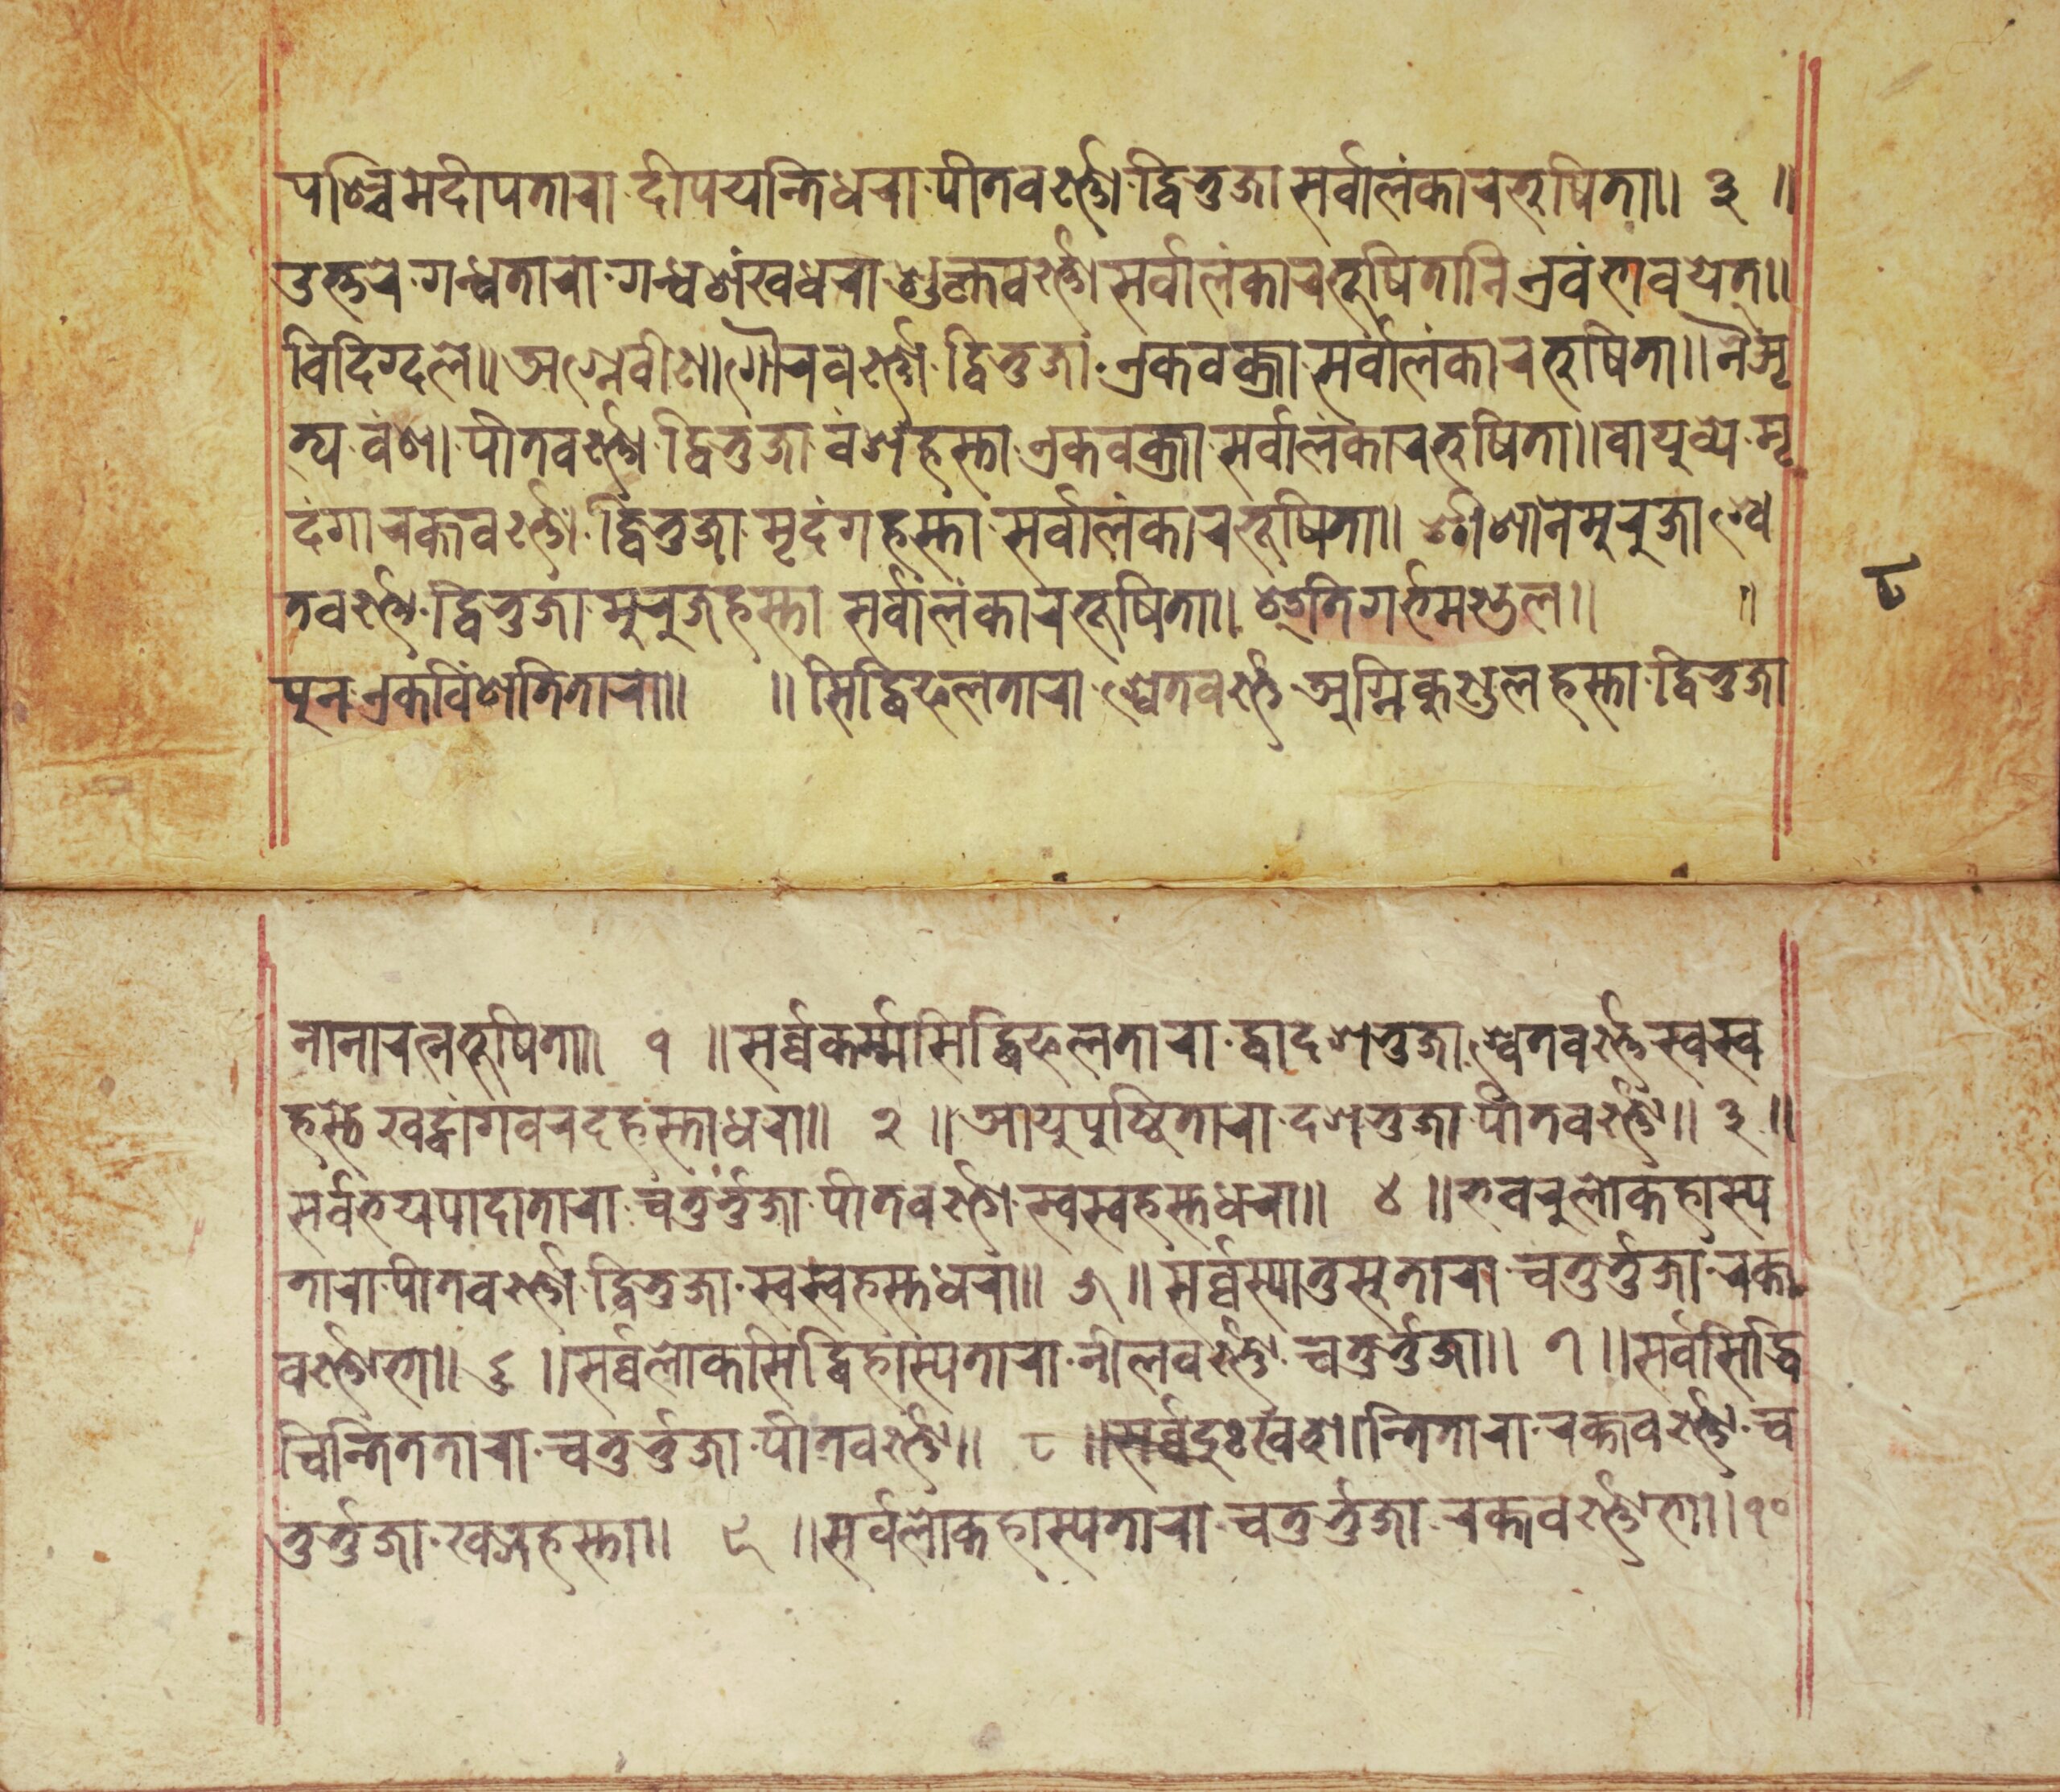 पश्चिमेदीपतारा दीपयन्तिधरा पीतवर्ण्णा द्विभुजा सर्वालंकारभुषिता॥ ३ ॥
उत्तरे गन्धतारा गन्धशंखधरा शुक्लवर्ण्णा सर्वालंकारभूषितानि एवंभावयेत्॥
विदिग्दले॥अग्नेवीणा गौरवर्ण्णा द्विभुजा एकवक्त्रा सर्वालंकारभुषिता॥नैऋ
त्य वंशा पीतवर्ण्णा द्विभुजा वंशहस्ता एकवक्त्रा सर्वालंकारभुषिता॥वायुव्ये मृ
दंगा रक्तवर्ण्णा द्विभुजा मृदंगहस्ता सर्वालंकारभूषिता॥ ईशानेमुरुजा श्वे
तवर्ण्ण द्विभुजा मुरुजहस्ता सर्वालंकारभूषिता॥ इतिगर्भमण्डल॥ ॥
पुन एकविंशतितारा॥ ॥ सिद्धिफलतारा श्वेतवर्ण्ण अग्निकुण्डलहस्ता द्विभुजा
८
नानारत्नभूषिता॥ १ ॥सर्व्वकर्म्मसिद्धिफलतारा द्वादशभुजा श्वेतवर्ण्ण स्वस्व
हस्ते खट्वांगवरदहस्ताधरा॥ २ ॥आयुपुष्टितारा दशभुजा पीतवर्ण्ण॥ ३ ॥
सर्वभयपादातारा चतुर्भुजा पीतवर्ण्णा स्वस्वहस्तधरा॥ ४ ॥भवरुलोकहास्य
तारा पीतवर्ण्णा द्विभुजा स्वस्वहस्तधरा॥ ५ ॥ सर्व्वस्पातुसुतारा चतुर्भुजा रक्त
वर्ण्णाभा॥ ६ ॥सर्व्वलोकसिद्धिहास्यतारा नीलवर्ण्ण चतुर्भुजा॥ ७ ॥सर्वसिद्धि
चिन्तिततारा चतुर्भुजा पीतवर्ण्ण॥ ८ ॥सर्व्वदुःखशान्तितारा रक्तवर्ण्ण च
तुर्भुजा खड्गहस्ता॥ ९ ॥सर्वलोकहास्यतारा चतुर्भुजा रक्तवर्ण्णाभा॥१०